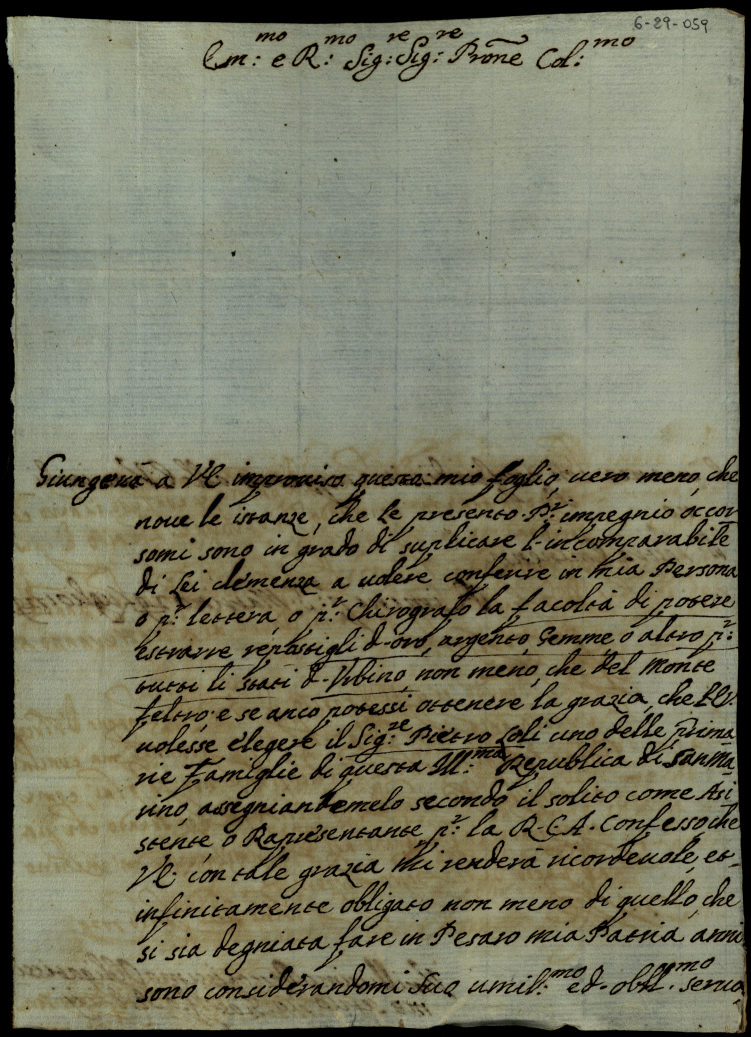 6-29-059
Em:mo e R:mo Sig:re Sig:re Prone Col:mo
Giungerà a VE improviso questo mio foglio, uero meno, che
noue le istanze, che Le presento. Pr: impegnio occor
somi sono in grado di suplicare l'incomparabile
di Lei clemenza a uolere conferire in mia Persona
o pr: lettera, o pr: Chirografo la facoltà di potere
estrarre repostigli d'oro, argento, Gemme, o altro pr:
tutti li stati d'Urbino, non meno, che del Monte
feltro; e se anco potessi ottenere la grazia, che
uolesse elegere il Sig:re Pietro Loli uno delle prima
rie Famiglie di questa Ill:ma Republica di San Ma
rino, assegniandomelo secondo il solito come Asi
stente o Rapresentante pr: la R.C.A. Confesso, che
VE. con tale grazia mi renderà ricordeuole, et
infinitamente obligato non meno di quello, che
si sia degniata fare in Pesaro mia Patria anni
sono considerandomi suo umil:mo ed obll:mo seruo